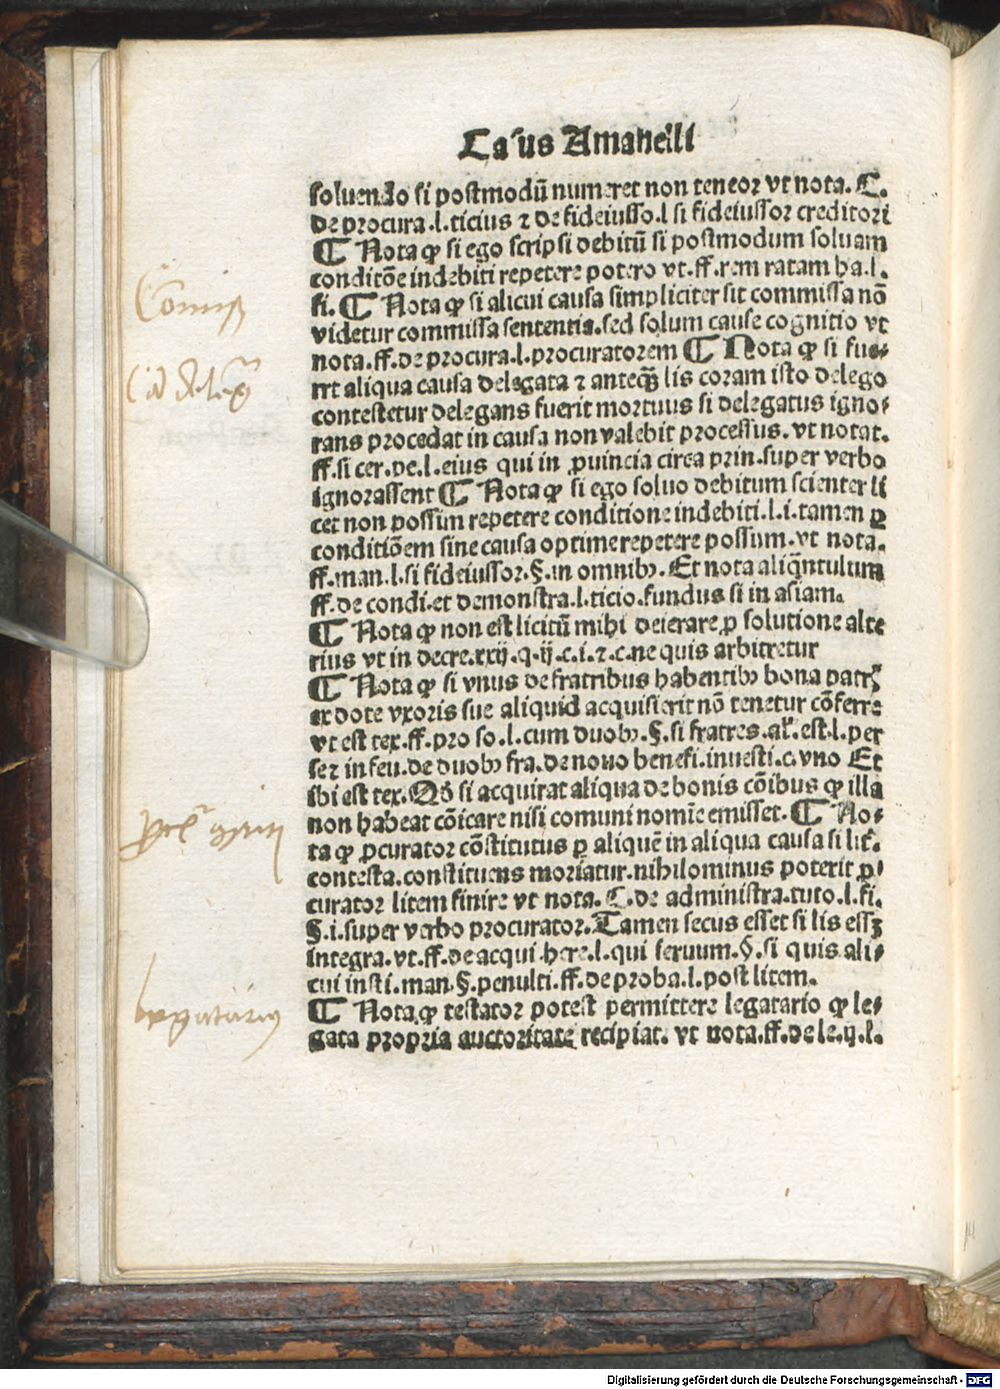 Ca͛us Amanelli
soluendo si postmodū numeret non teneor vt nota. C.
de procura.l.ticius ⁊ de fideiusso.l si fideiussor creditori
¶ Nota ꝙ si ego scripsi debitū si postmodum soluam
conditōe indebiti repetere potero vt.ff.rem ratam ha.l.
fi. ¶ Nota ꝙ si alicui causa simpliciter sit commissa nō
videtur commissa sententia.sed solum cause cognitio vt
nota.ff.de procura.l.procuratorem ¶ Nota ꝙ si fue⸗
rit aliqua causa delegata ⁊ anteqꝫ lis coram isto delego
contestetur delegans fuerit mortuus si delegatus igno⸗
rans procedat in causa non valebit processus.vt notat.
ff.si cer.pe.l.eius qui in ꝓuincia circa prin.super verbo
ignorassent ¶ Nota ꝙ si ego soluo debitum scienter li
cet non possim repetere conditione indebiti.l.i.tamen ꝑ
conditiōem sine causa optime repetere possum.vt nota.
ff.man.l.si fideiussor.§.in omnibꝰ. Et nota aliq̄ntulum
ff.de condi.et demonstra.l.ticio.fundus si in asiam.
¶ Nota ꝙ non est licitū mihi deierare ꝓ solutione alte
rius vt in decre.xxij.q.ij.c.i.⁊.c.ne quis arbitretur
¶ Nota ꝙ si vnus de fratribus habentibꝰ bona patrꝭ
ex dote vxoris sue aliquid acquisierit nō tenetur cōferre
vt est tex.ff.pro so.l.cum duobꝰ.§.si fratres.al̓.est.l.per
se ⁊ in feu.de duobꝰ fra.de nouo benefi.inuesti.c.vno Et
ibi est tex. Qḋ si acquirat aliqua de bonis cōibus ꝙ illa
non habeat cōicare nisi comuni nomīe emisset. ¶ No⸗
ta ꝙ ꝓcurator cōstitutus ꝑ aliquē in aliqua causa si lit̓.
contesta.constituens moriatur.nihilominus poterit ꝓ⸗
curator litem finire vt nota. C.de administra.tuto.l.fi.
§.i.super verbo procurator. Tamen secus esset si lis essꝫ
integra.vt.ff.de acqui.here.l.qui seruum.§.si quis ali⸗
cui insti.man.§.penulti.ff.de proba.l.post litem.
¶ Nota ꝙ testator potest permittere legatario ꝙ le⸗
gata propria auctoritate recipiat. vt nota.ff.de le.ij.l.
legatarius
14
Digitalisierung gefördert durch die Deutsche Forschungsgemeinschaft - DFG